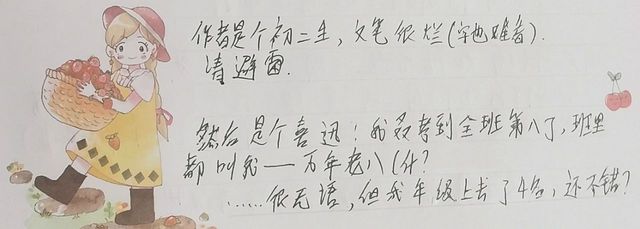 作者是个初二生,文笔很烂(字也难看).
请避雷.
然后是个喜迅!我又考到全班第八了,班里
都叫我——万年老八(什?
......很无语,但我年级上去了4名,还不错?